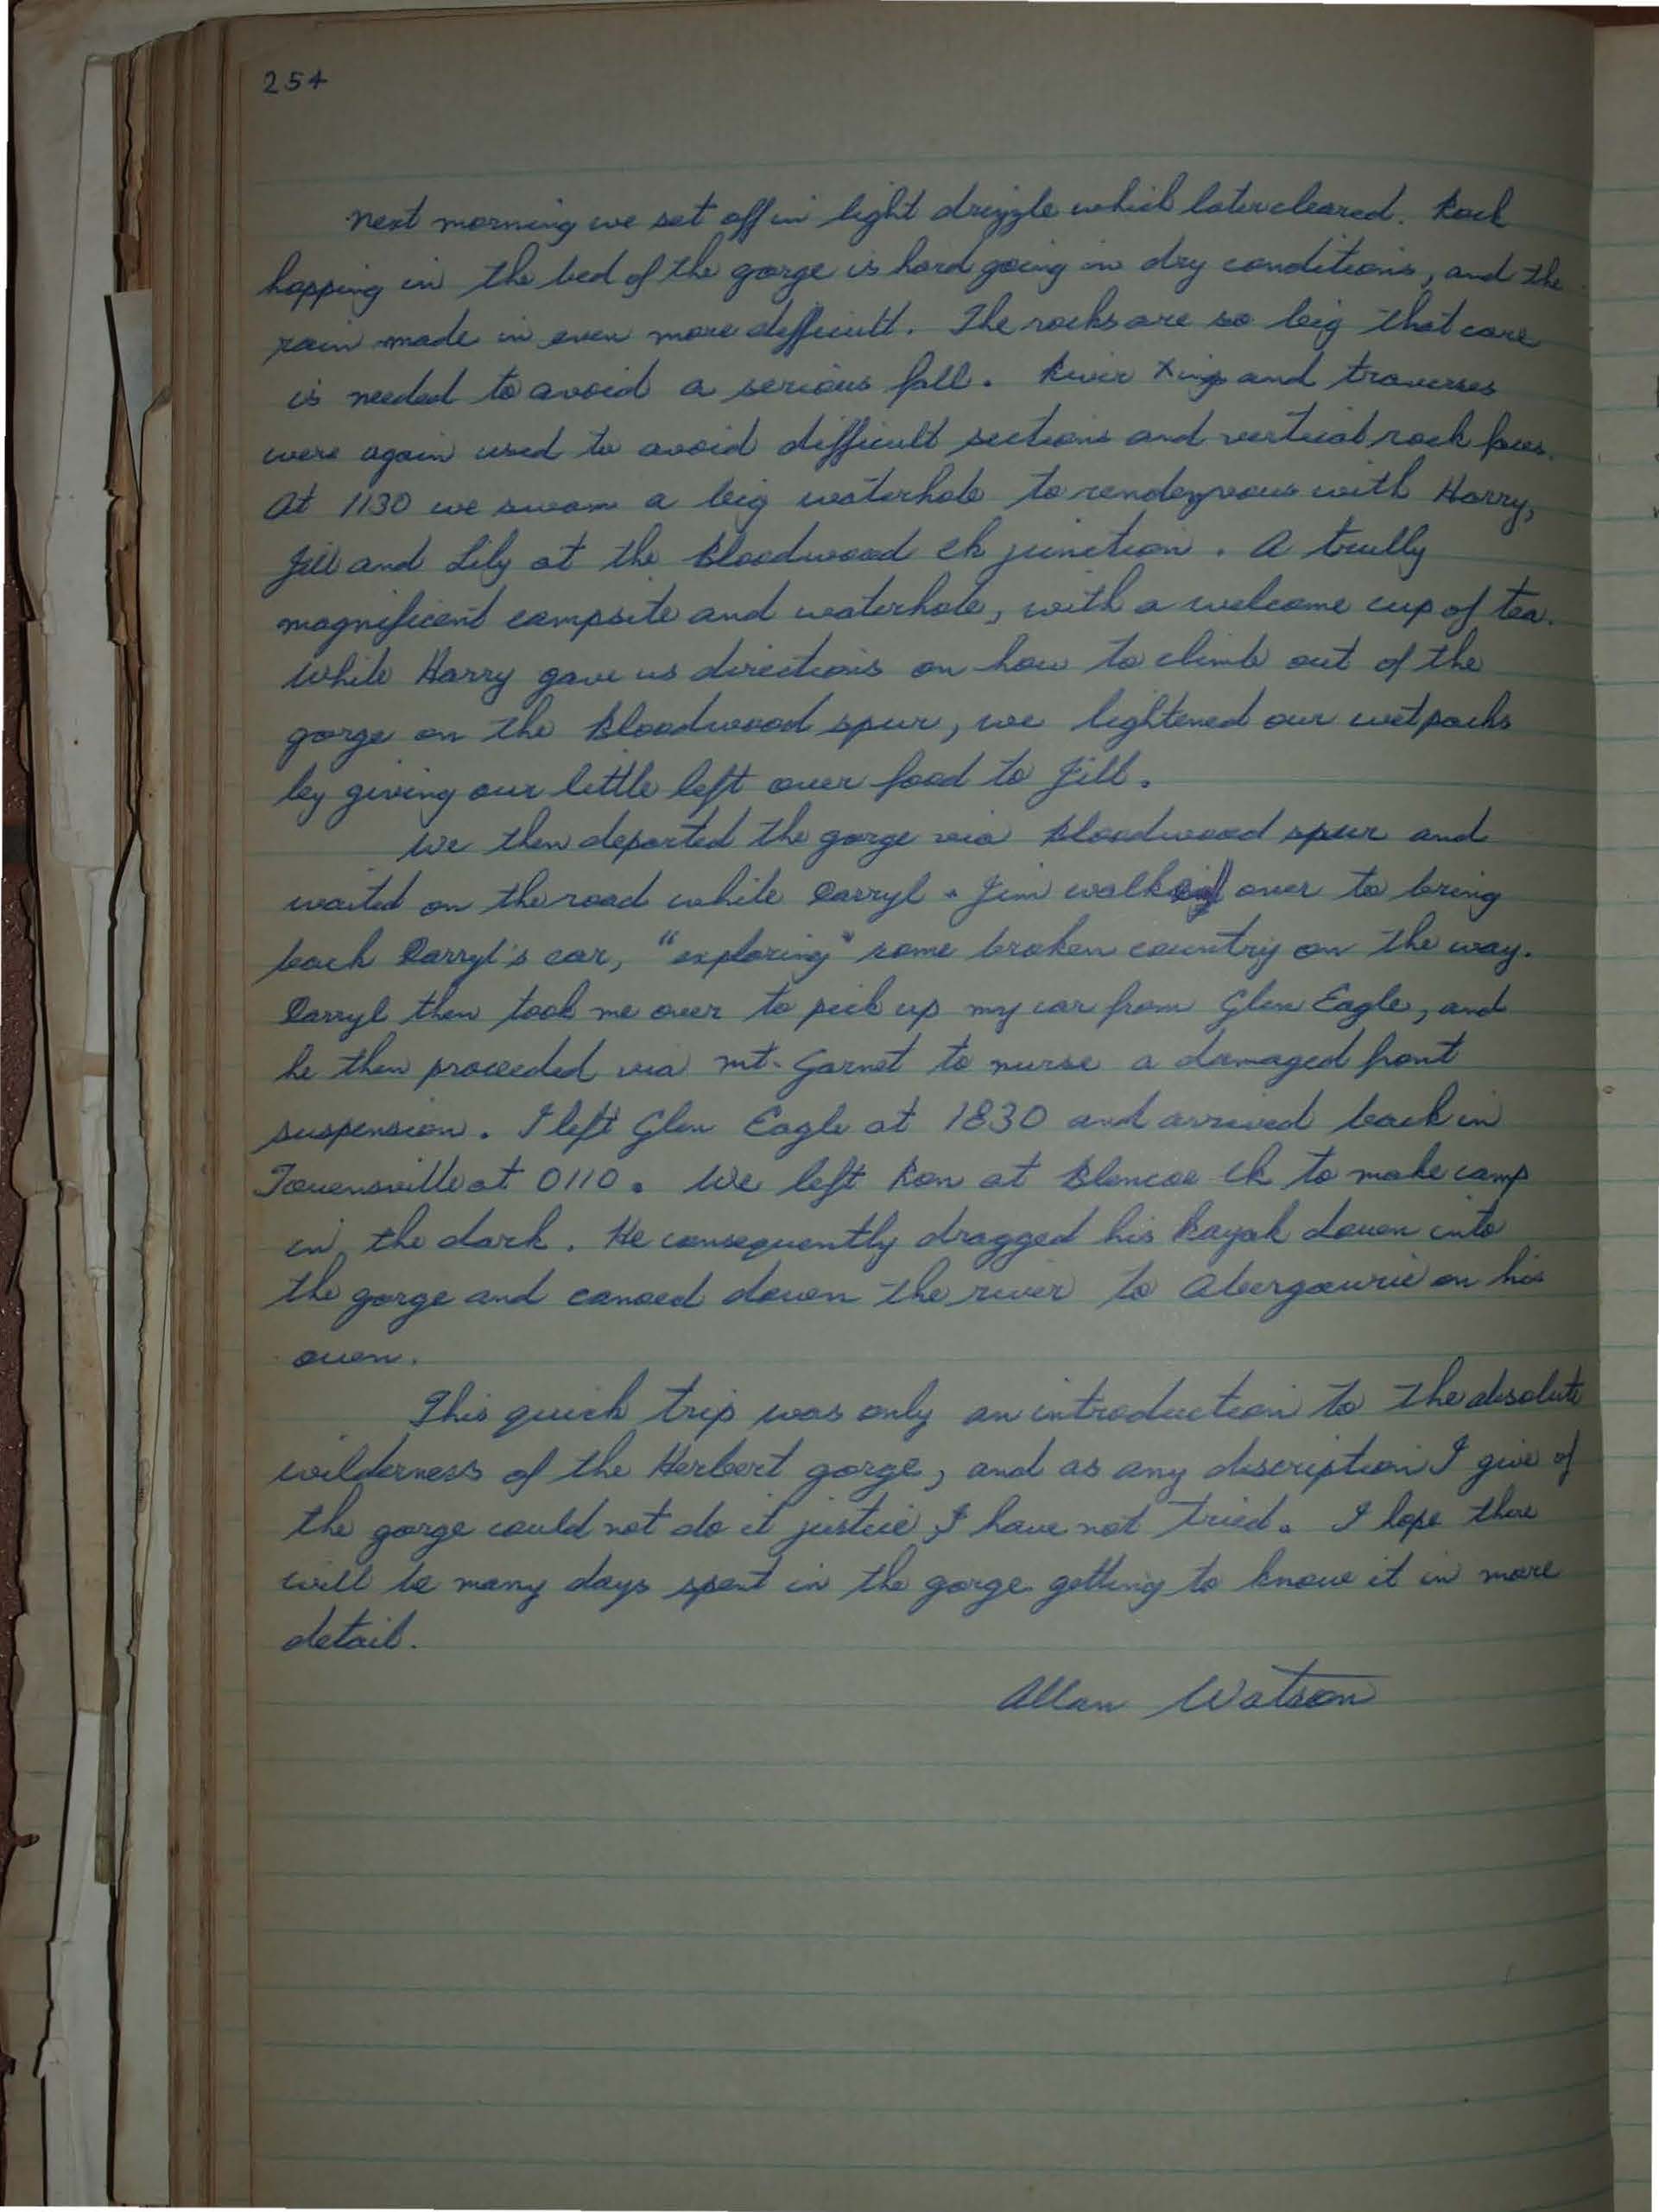 254
Next morning we set off in light drizzle which later cleared. Rock
hopping in the bed of the gorge is hard going in dry conditions, and the
rain made in even more difficult. The rocks are so big that care
is needed to avoid a serious fall. River Xings and traverses
were again used to avoid difficult sections and vertical rock faces.
At 1130 we swam a big waterhole to rendezvous with Harry,
Jill and Lily at the Bloodwood Ck junction. A trully
magnificent campsite and waterhole, with a welcome cup of tea.
While Harry gave us directions on how to climb out of the
gorge on the Bloodwood spur, we lightened our wet packs
by giving our little left over food to Jill.
We then departed the gorge via Bloodwood spur and
waited on the road while Darryl & Jim walked over to bring
back Darryl's car, "exploring" some broken country on the way.
Darryl then took me over to pick up my car from Glen Eagle, and
he then proceeded via Mt. Garnet to nurse a damaged front
suspension. I left Glen Eagle at 1830 and arrived back in
Townsville at 0110. We left Ron at Blencoe Ck to make camp
in the dark. He consequently dragged his kayak down into
the gorge and canoed down the river to Abergowrie on his
own.
This quick trip was only an introduction to the absolute
wilderness of the Herbert gorge, and as any discription I give of
the gorge could not do it justice, I have not tried. I hope there
will be many days spent in the gorge getting to know it in more
detail.
Allan Watson